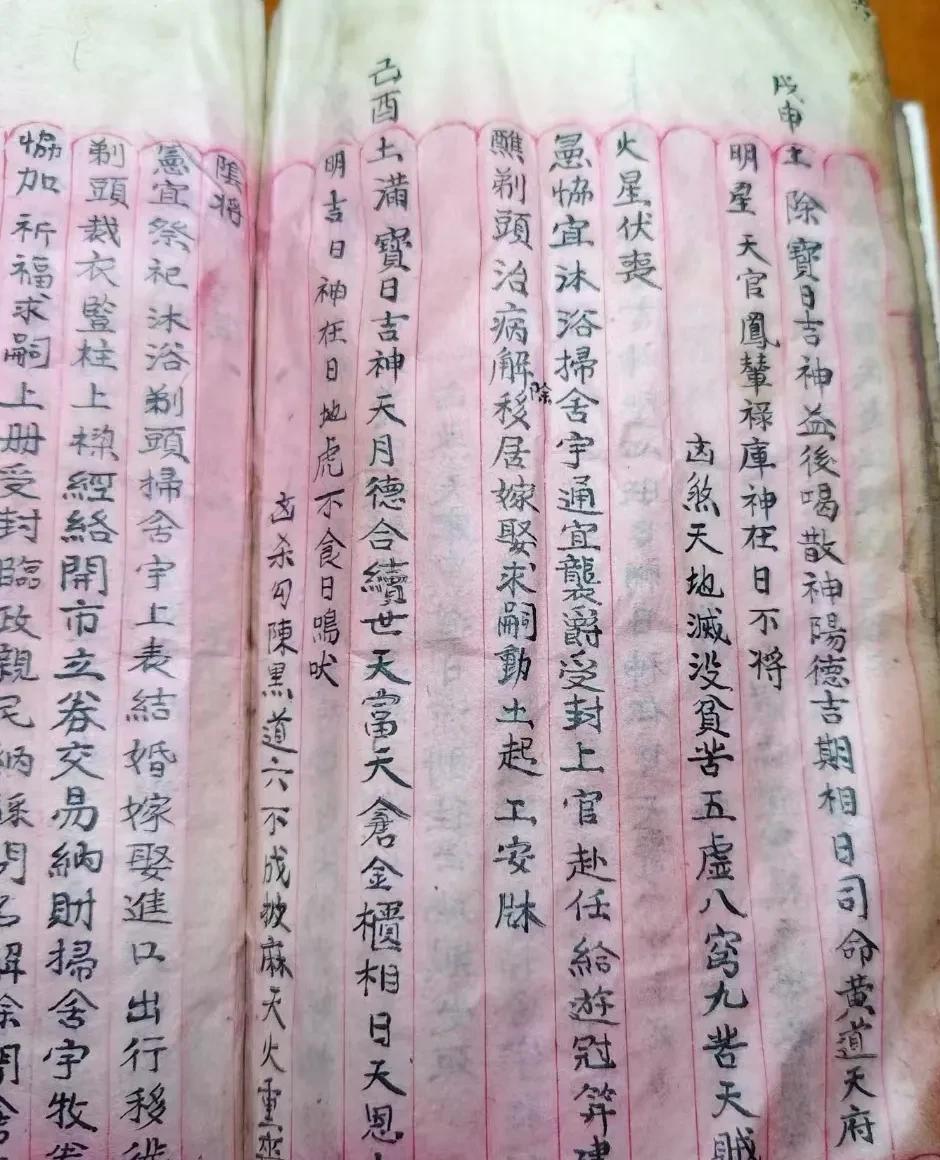 戊申
土除寶日吉神益後喝散神陽德吉期相日司命黃道天府
明星天官鳳輦祿庫神在日不將
凶煞天地滅没貧苦五虛八窮九苦天賊
火星伏喪
憲協宜沐浴掃舍宇通宜襲爵受封上官赴任給遊冠笄建
醮剃頭治病解除移居嫁娶求嗣動土起工安牀
己酉
土滿寶日吉神天月德合續世天當天倉金櫃相日天恩
明吉日神在日地虎不食日鳴吠
凶杀勾陳黑道六不成披麻天火重
陰将
憲宜祭祀沐浴剃頭掃舍宇上表結婚嫁娶進口出行移徙
剃頭裁衣豎柱上樑經絡開市立券交易納財掃舍宇牧養
協加祈福求嗣上册受封臨政親民納採問名解除開倉